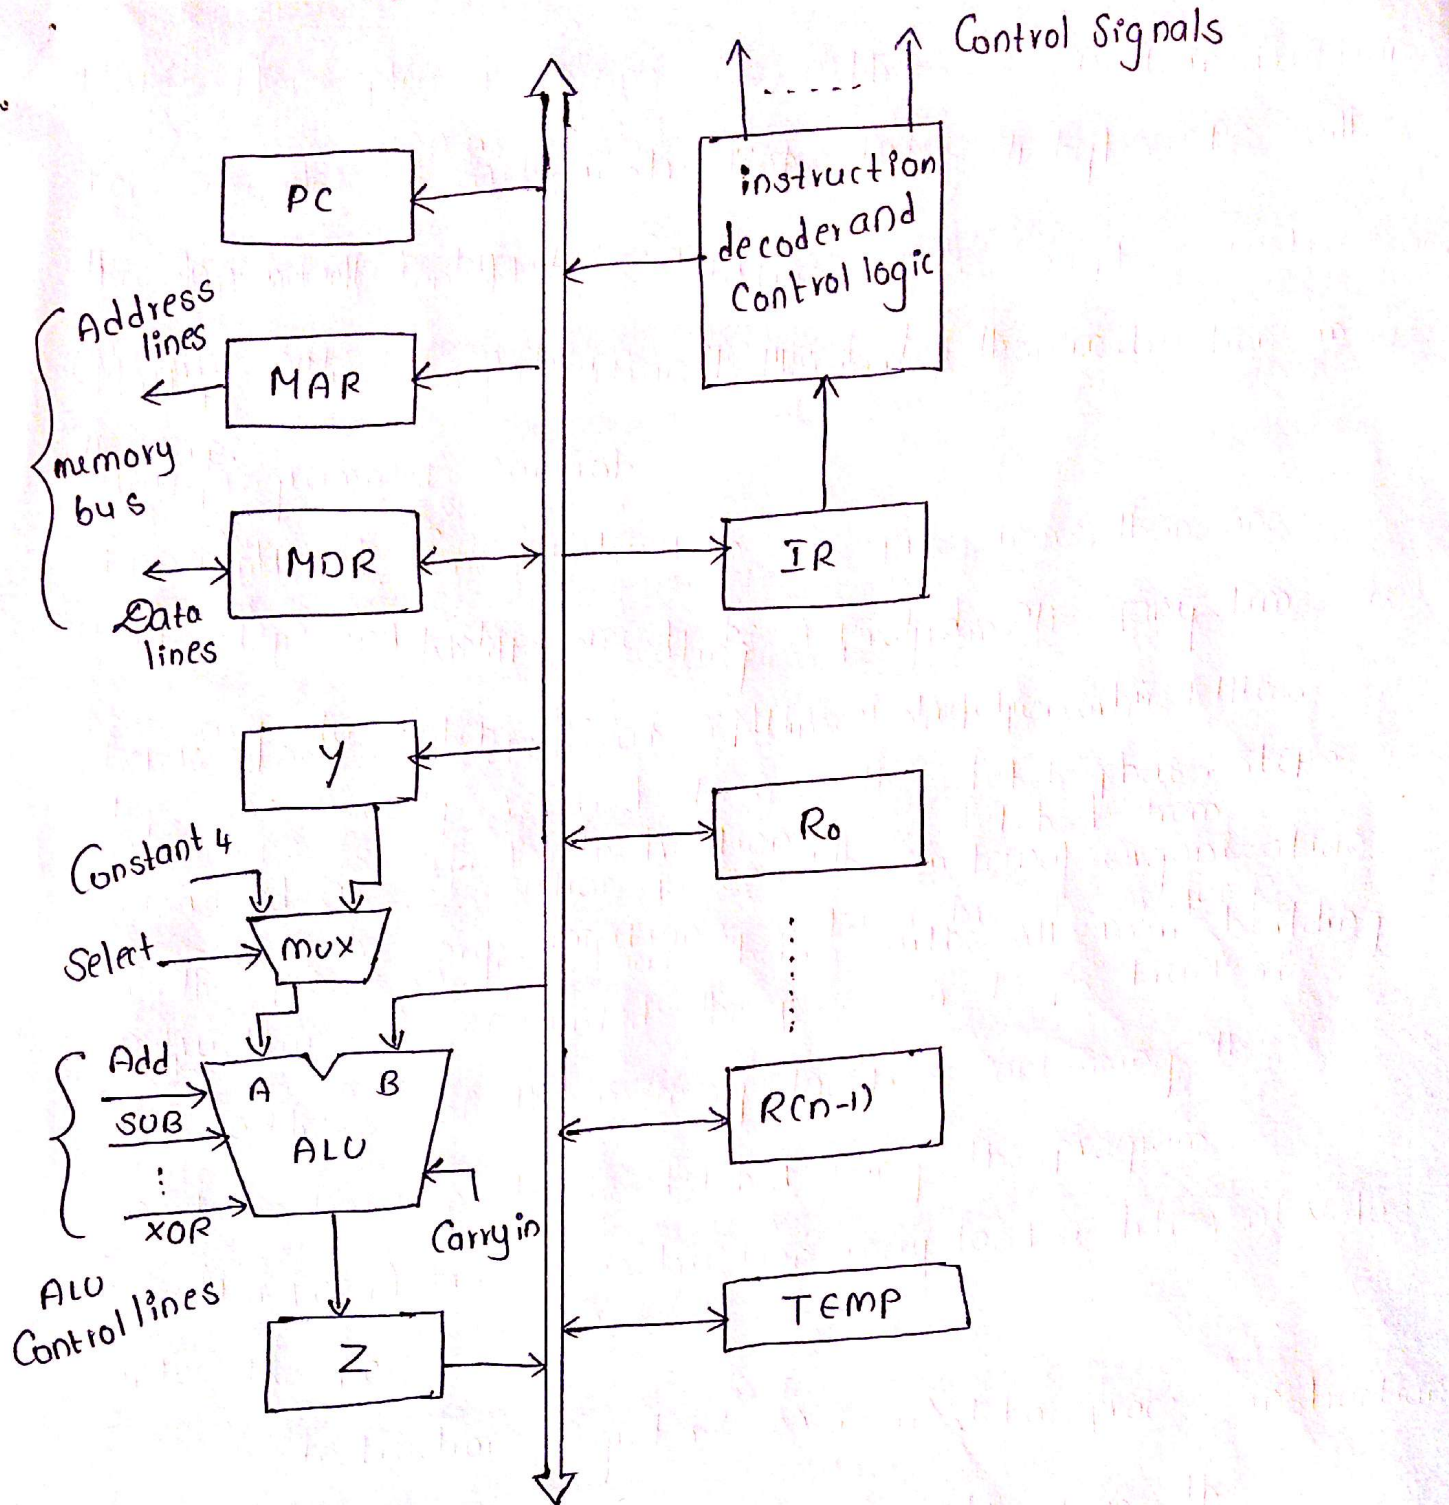 Control Signals
instruction
decoder and
Control logic
PC
Address
lines
MAR
memory
bus
MDR
IR
Data
lines
Y
R0
Constant 4
Select
MUX
Add
A
B
SUB
ALU
R(n-1)
XOR
Carry in
ALU
Control lines
TEMP
Z